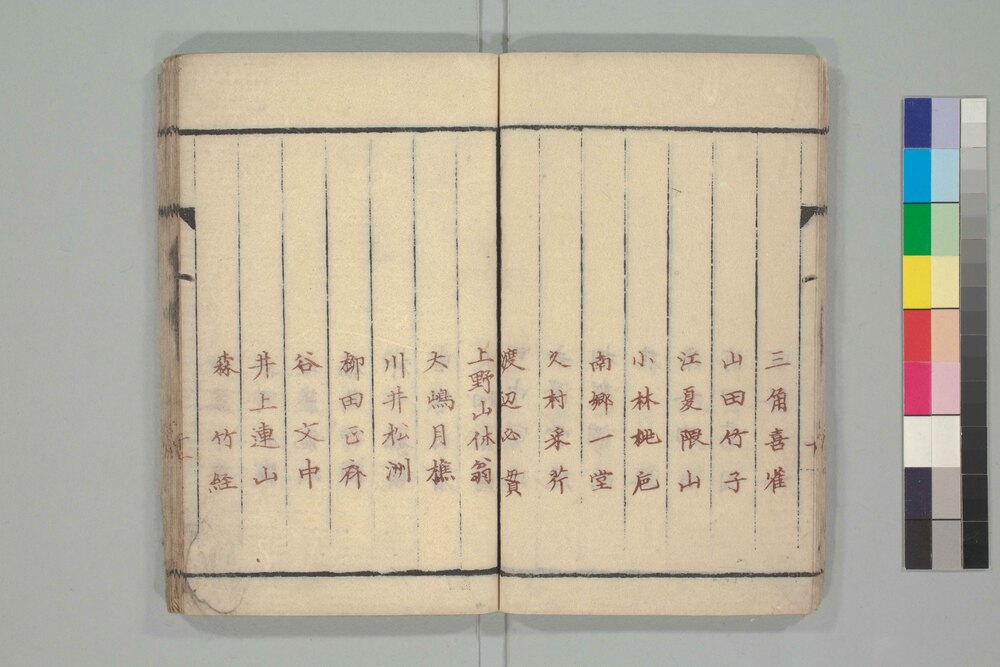 三角喜雀
山田竹子
江夏隈山
小林桃巵
南郷一堂
久村釆芹
渡辺必貫
上野山休翁
大嶋月樵
川井松洲
柳田正斎
谷文中
井上連山
森竹経